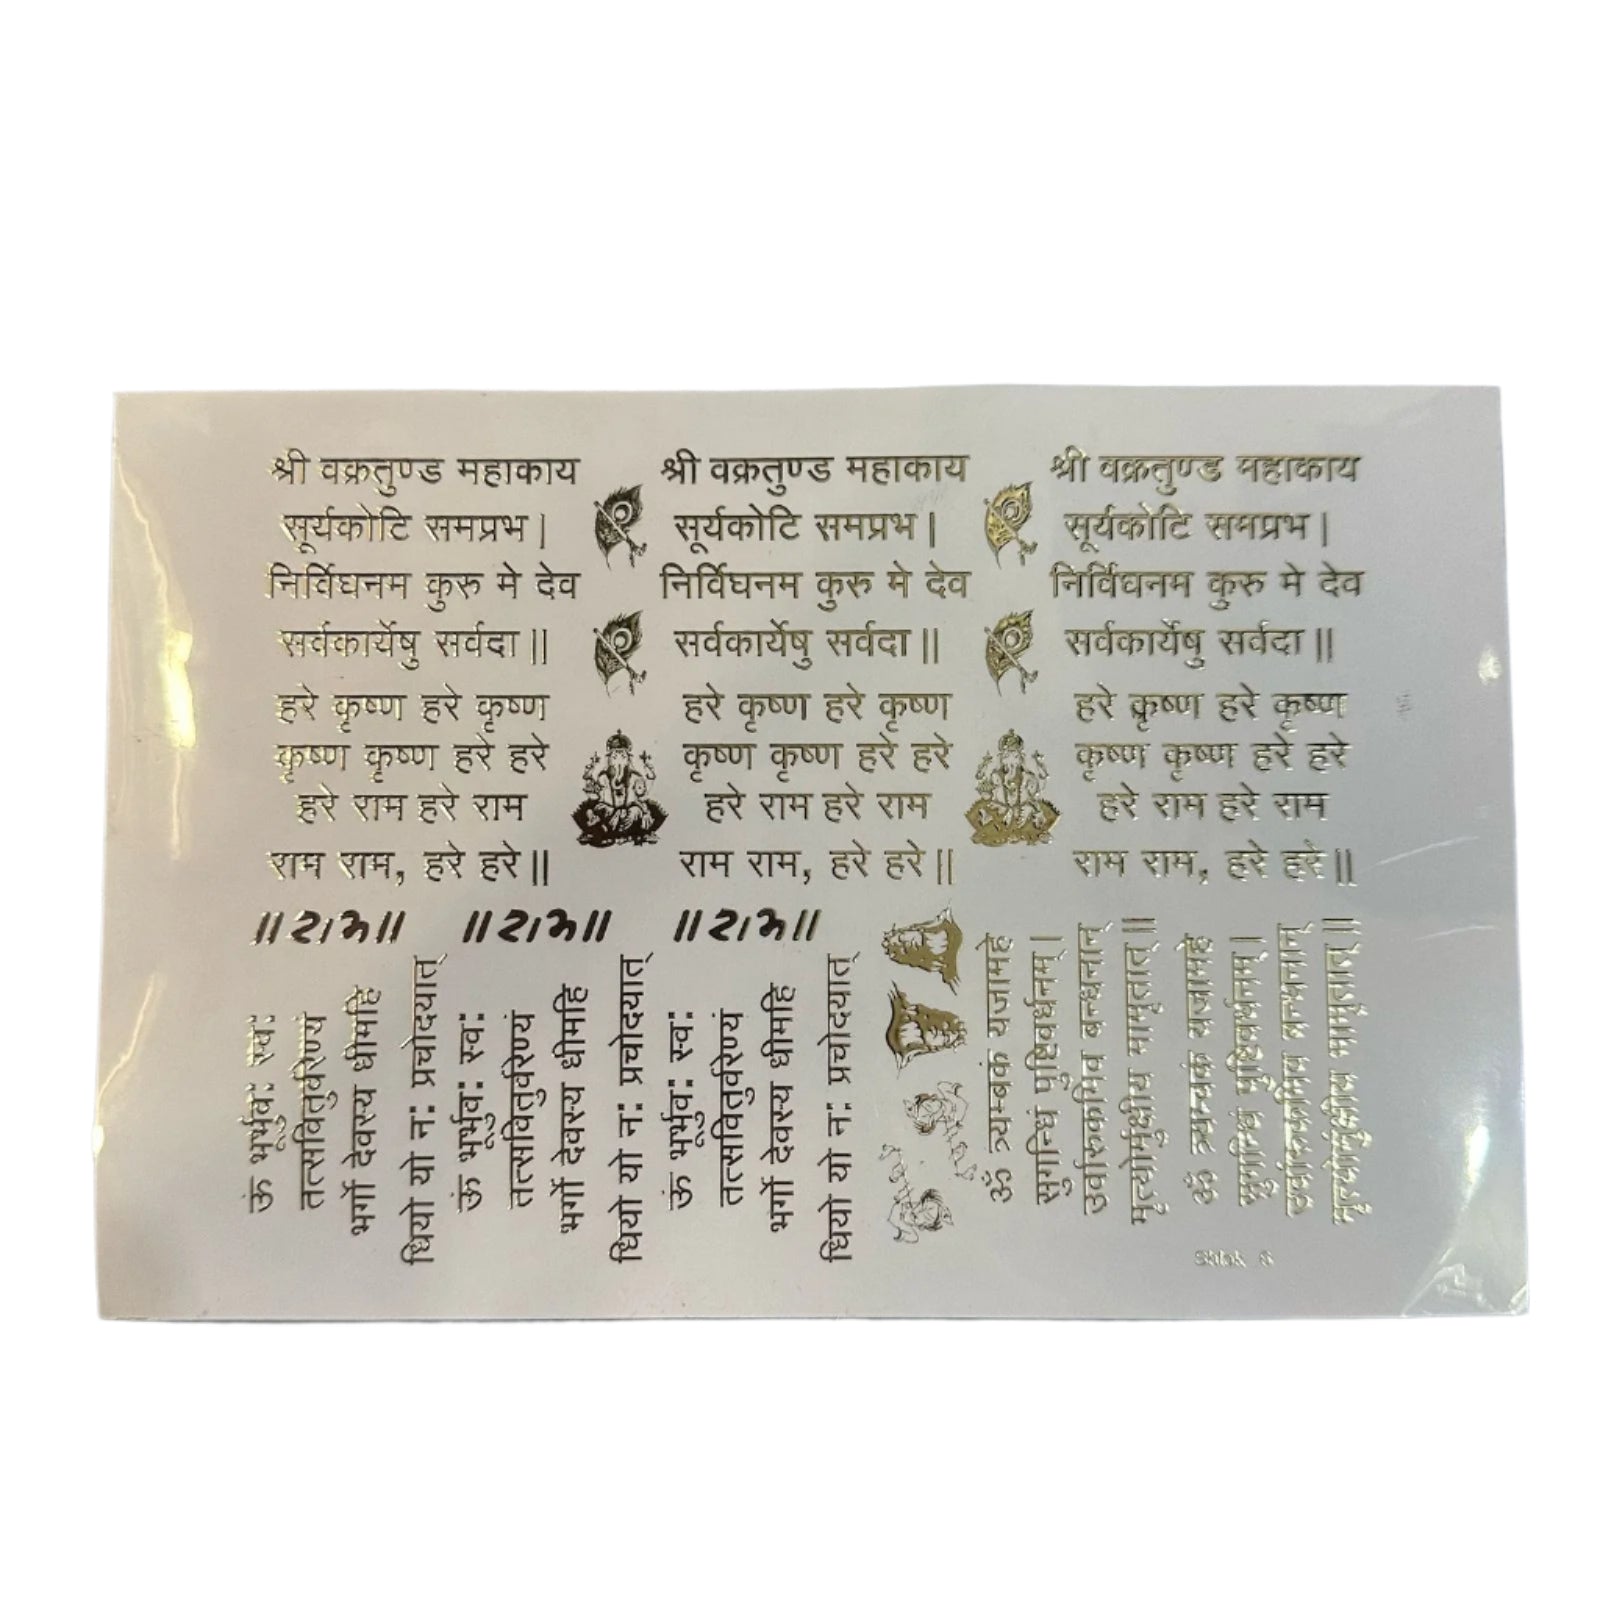 श्री वक्रतुण्ड महाकाय
सूर्यकोटि समप्रभ |
निर्विघनम कुरु मे देव
सर्वकार्येषु सर्वदा ||
हरे कृष्ण हरे कृष्ण
कृष्ण कृष्ण हरे हरे
हरे राम हरे राम
राम राम, हरे हरे ||
श्री वक्रतुण्ड महाकाय
सूर्यकोटि समप्रभ |
निर्विघनम कुरु मे देव
सर्वकार्येषु सर्वदा ||
हरे कृष्ण हरे कृष्ण
कृष्ण कृष्ण हरे हरे
हरे राम हरे राम
राम राम, हरे हरे ||
श्री वक्रतुण्ड महाकाय
सूर्यकोटि समप्रभ |
निर्विघनम कुरु मे देव
सर्वकार्येषु सर्वदा ||
हरे कृष्ण हरे कृष्ण
कृष्ण कृष्ण हरे हरे
हरे राम हरे राम
राम राम, हरे हरे ||
|| राम ||
|| राम ||
|| राम ||
ऊं भूर्भुवः स्वः
तत्सवितुर्वरेण्यं
भर्गो देवस्य धीमहि
धियो यो नः प्रचोदयात्
ऊं भूर्भुवः स्वः
तत्सवितुर्वरेण्यं
भर्गो देवस्य धीमहि
धियो यो नः प्रचोदयात्
ऊं भूर्भुवः स्वः
तत्सवितुर्वरेण्यं
भर्गो देवस्य धीमहि
धियो यो नः प्रचोदयात्
ॐ त्र्यम्बकं यजामहे
सुगन्धिं पुष्टिवर्धनम् |
उर्वारुकमिव बन्धनान्
मृत्योर्मुक्षीय मामृतात् ||
ॐ त्र्यम्बकं यजामहे
सुगन्धिं पुष्टिवर्धनम् |
उर्वारुकमिव बन्धनान्
मृत्योर्मुक्षीय मामृतात् ||
Shlok 6